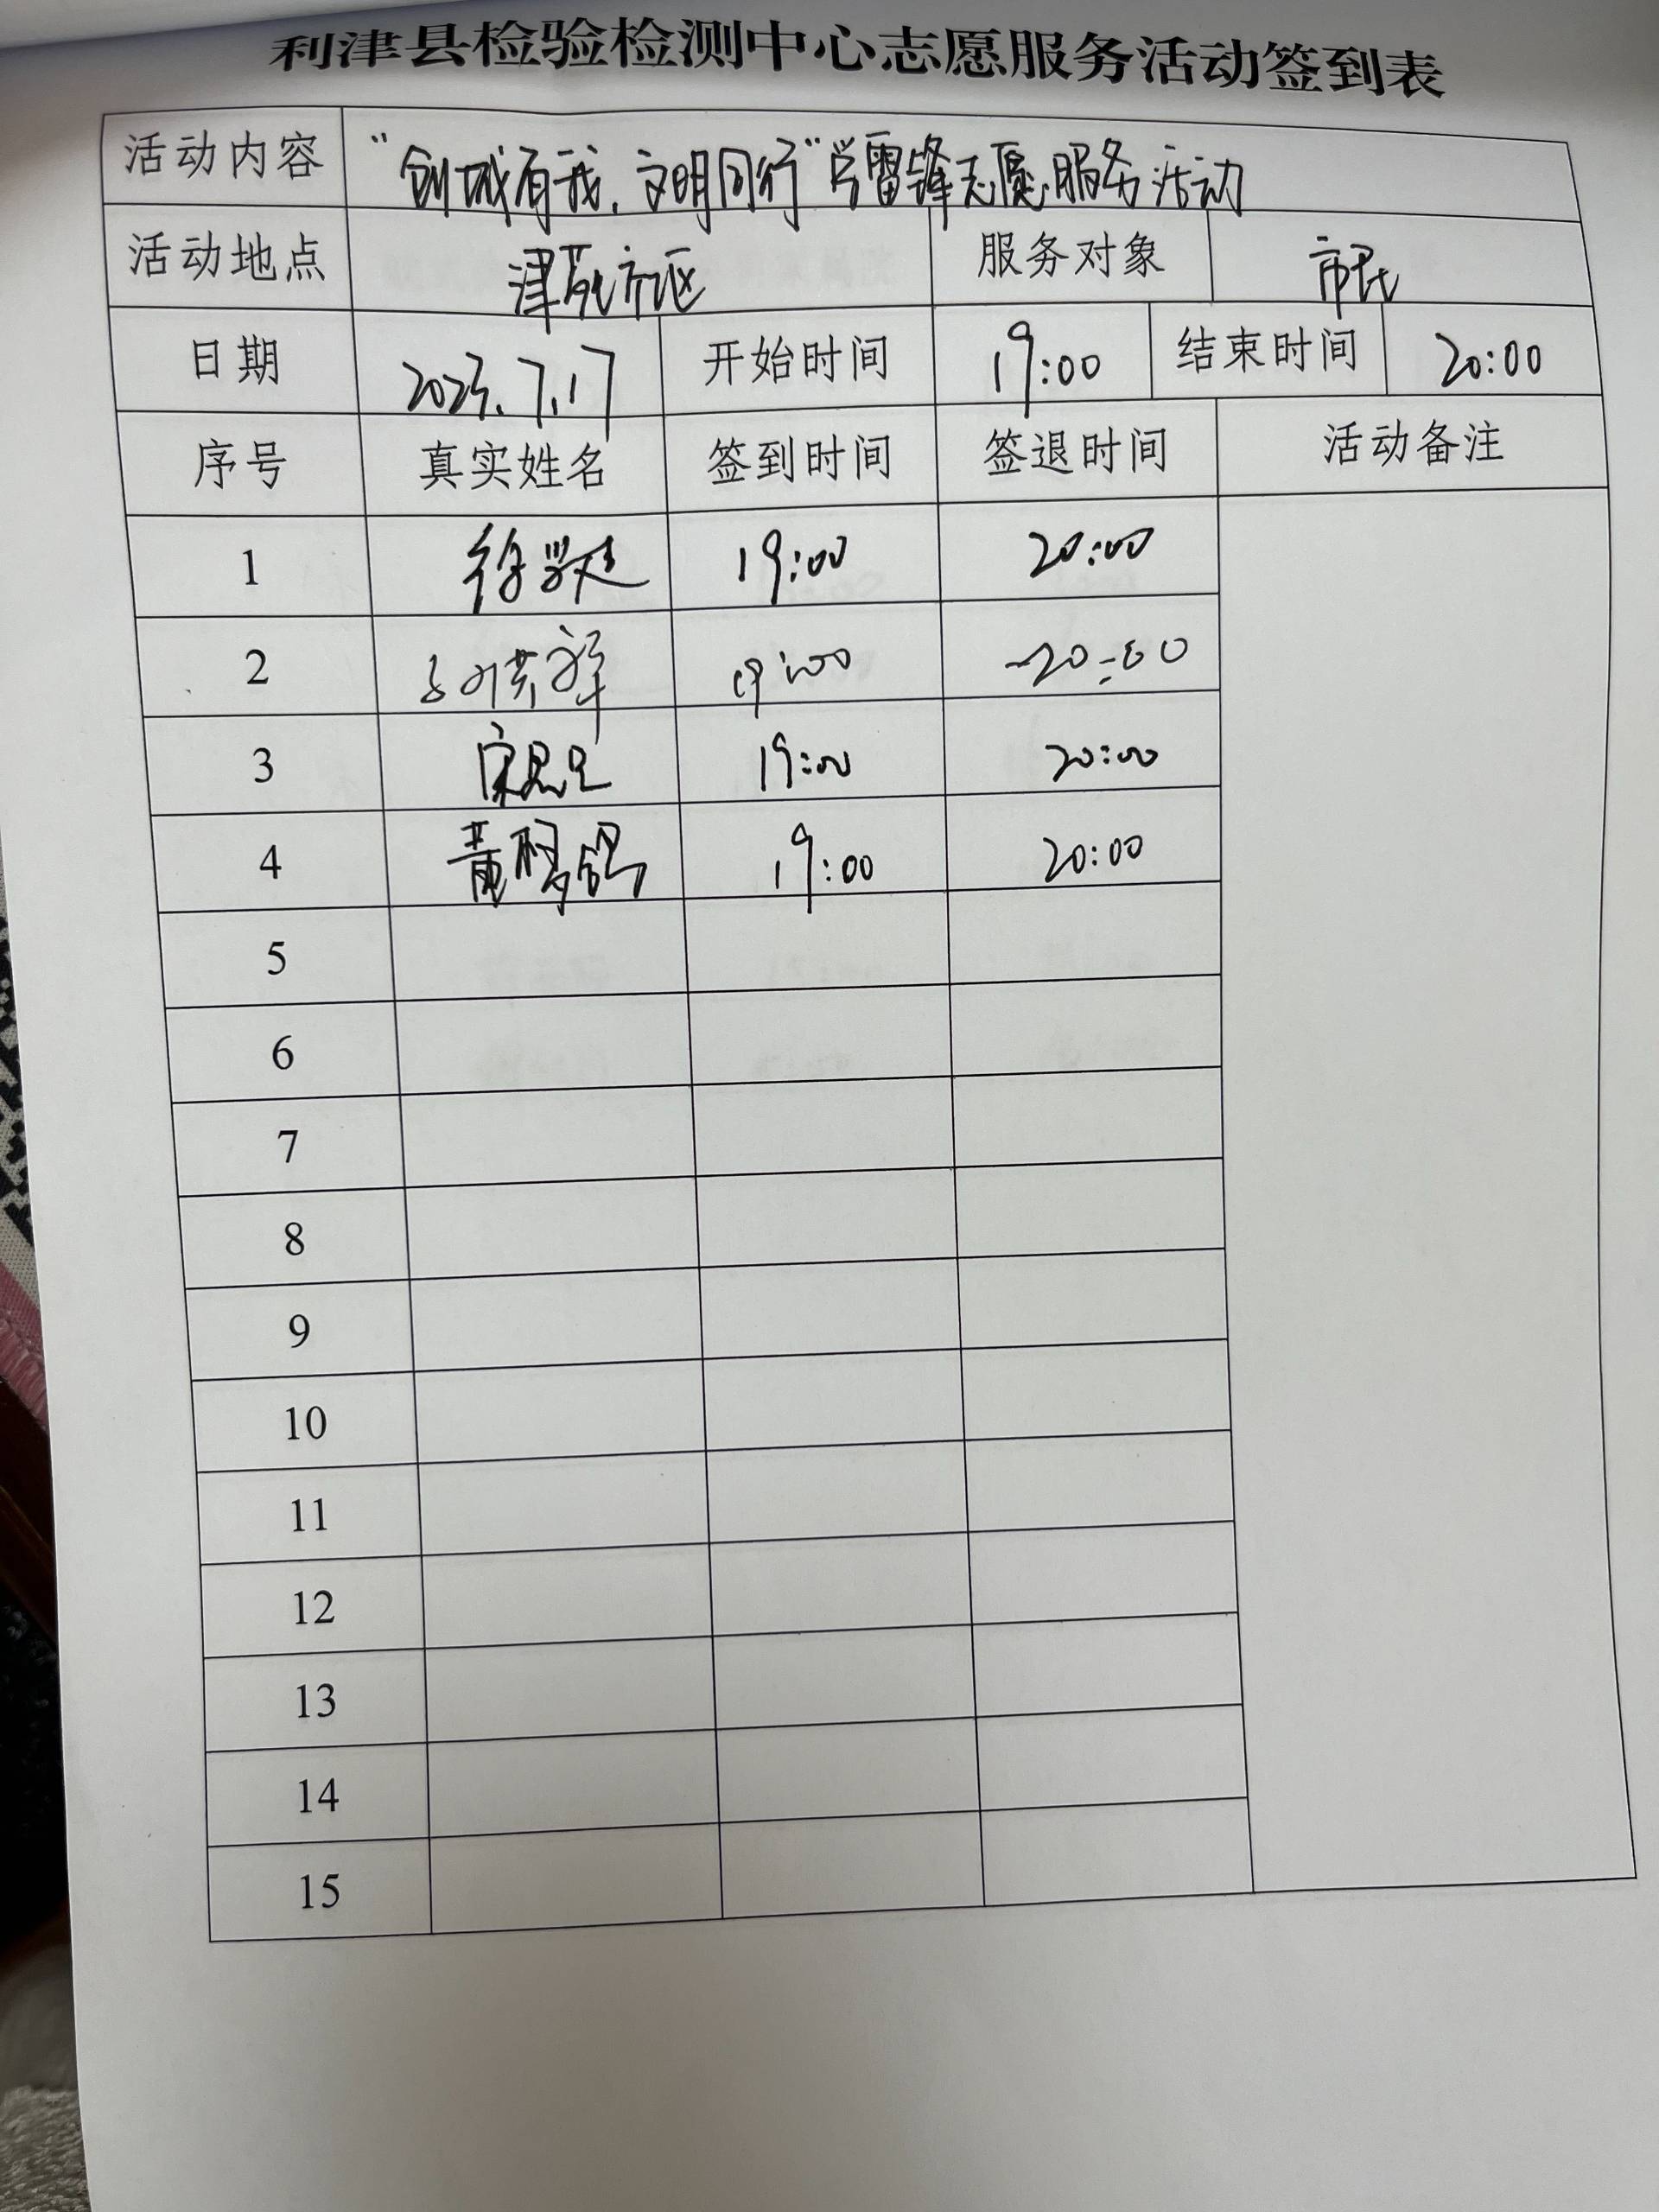 利津县检验检测中心志愿服务活动签到表
活动内容 “创城有我,文明同行”学雷锋志愿服务活动
活动地点 津苑社区 服务对象 市民
日期 2023.7.17 开始时间 19:00 结束时间 20:00
序号 真实姓名 签到时间 签退时间 活动备注
1 19:00 20:00
2 19:00 20:00
3 19:00 20:00
4 黄 19:00 20:00
5
6
7
8
9
10
11
12
13
14
15